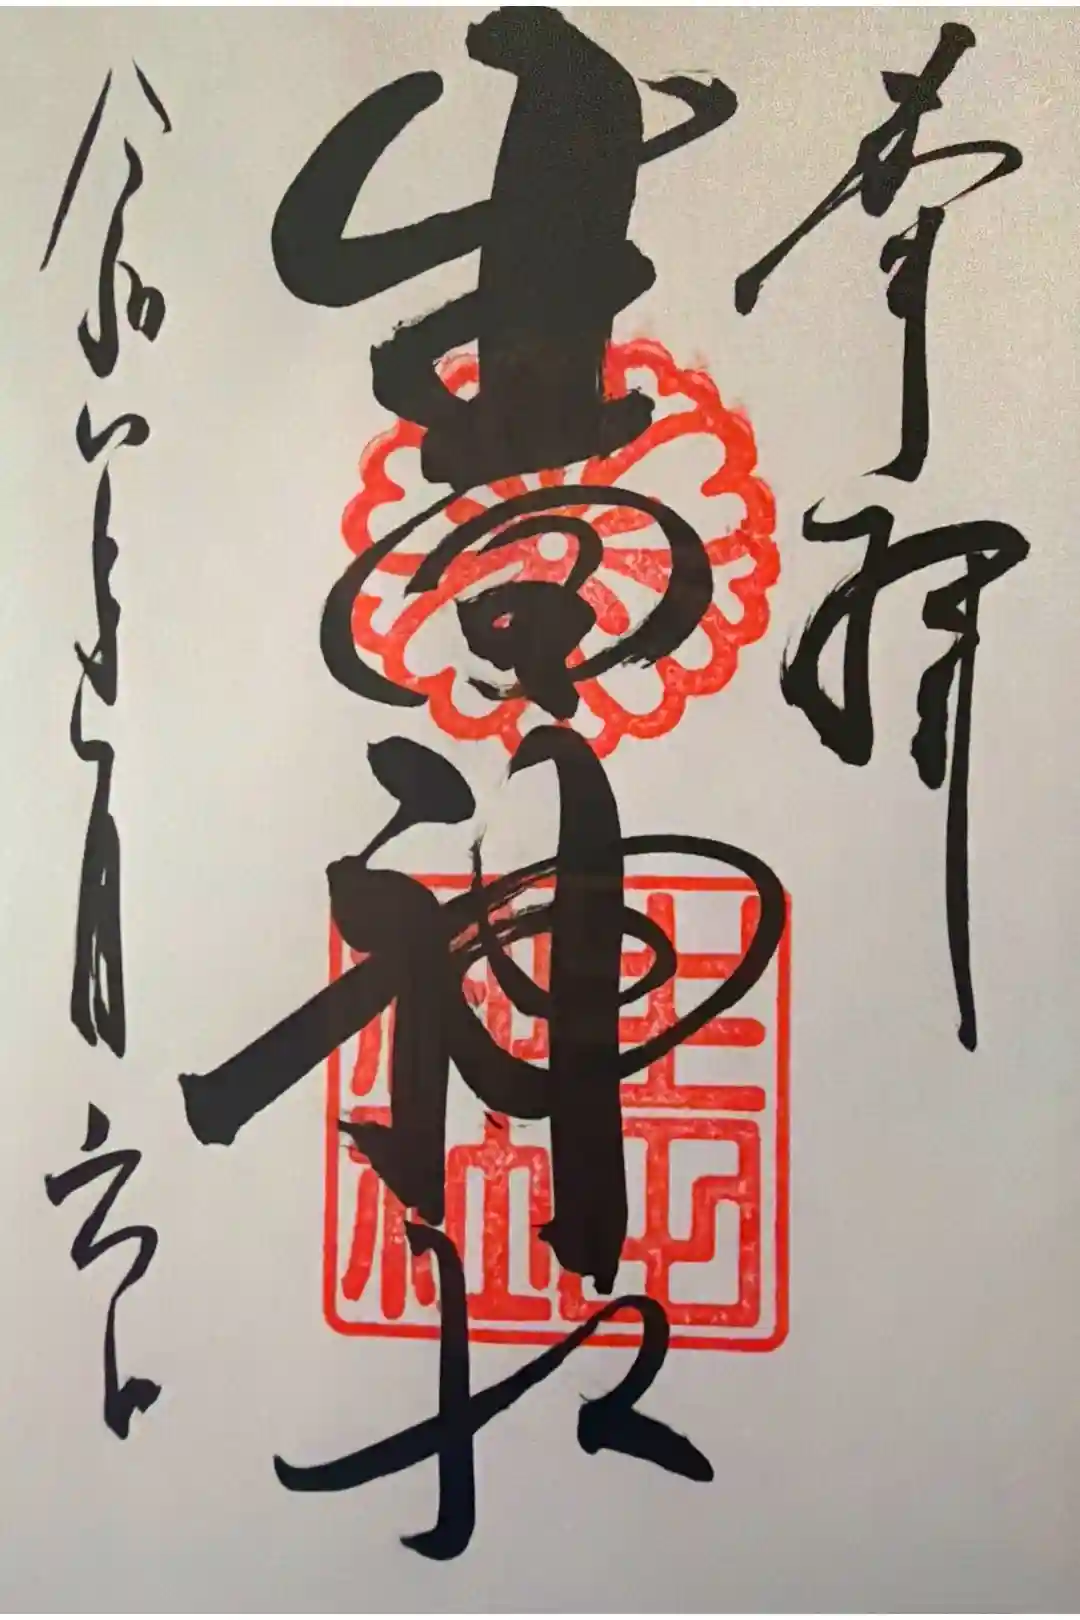 奉拝
生田神社
令和八年七月六日
生田
神社